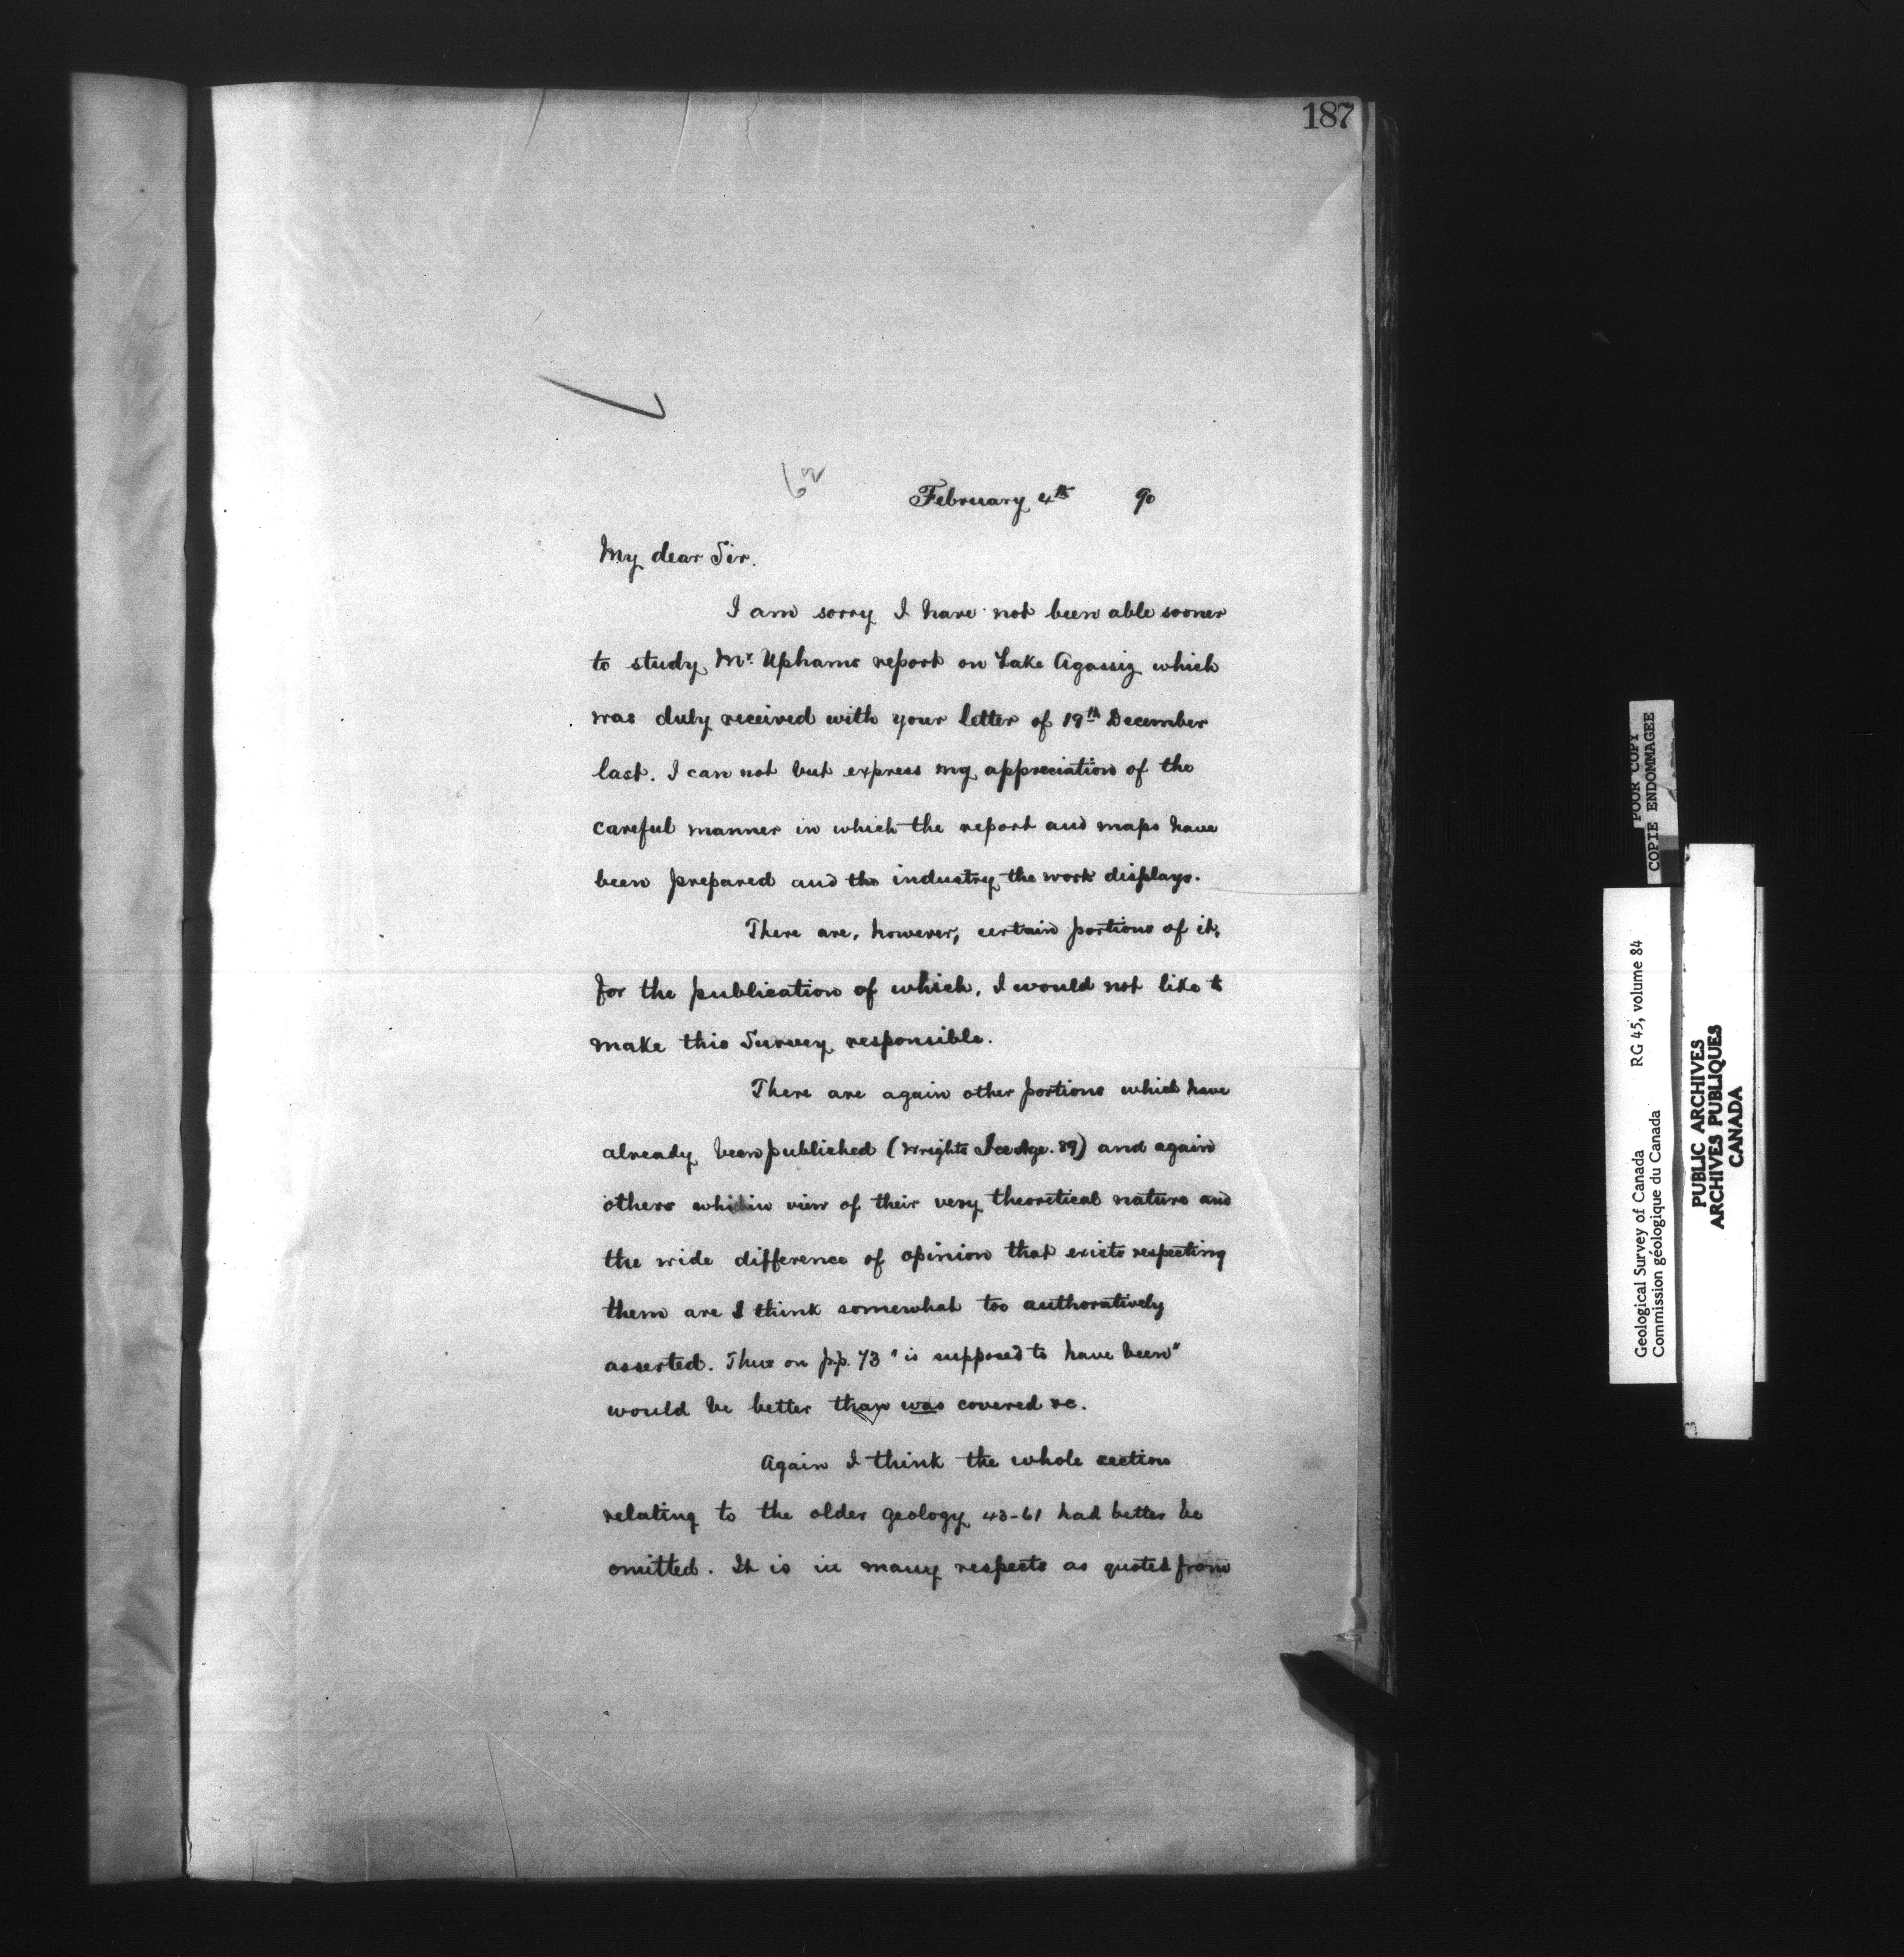 187
February 4th 90
My dear Sir.
I am sorry I have not been able sooner
to study Mr. Uphams report on Lake Agassiz which
was duly received with your letter of 19th December
last. I can not but express my appreciation of the
careful manner in which the report and maps have
been prepared and the industry the work displays.
There are, however, certain portions of it,
for the publication of which, I would not like to
make this Survey responsible.
There are again other portions which have
already been published (Wrights Ice Age. 89) and again
others which in view of their very theoretical nature and
the wide difference of opinion that exists respecting
them are I think somewhat too authoratively
asserted. Thus on pp. 73 "is supposed to have been"
would be better than was covered &c.
Again I think the whole section
relating to the older geology 43-61 had better be
omitted. It is in many respects as quoted from
POOR COPY
COPIE ENDOMMAGEE
Geological Survey of Canada RG 45, volume 84
Commission géologique du Canada
PUBLIC ARCHIVES
ARCHIVES PUBLIQUES
CANADA